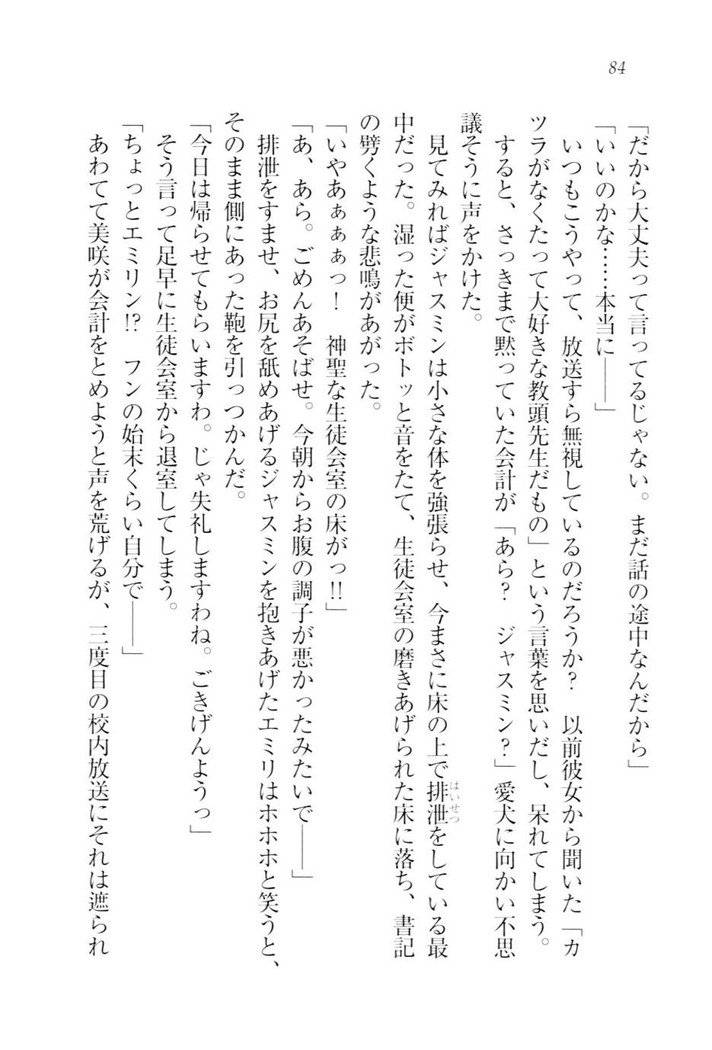 84
「だから大丈夫って言ってるじゃない。まだ話の途中なんだから」
「いいのかな……本当に――」
いつもこうやって、放送すら無視しているのだろうか？　以前彼女から聞いた「カ
ツラがなくたって大好きな教頭先生だもの」という言葉を思いだし、呆れてしまう。
すると、さっきまで黙っていた会計が「あら？　ジャスミン？」愛犬に向かい不思
議そうに声をかけた。
見てみればジャスミンは小さな体を強張らせ、今まさに床の上で排泄をしている最
はいせつ
中だった。湿った便がボトッと音をたて、生徒会室の磨きあげられた床に落ち、書記
の劈くような悲鳴があがった。
「いやあぁぁぁっ！　神聖な生徒会室の床がっ!!」
「あ、あら。ごめんあそばせ。今朝からお腹の調子が悪かったみたいで――」
排泄をすませ、お尻を舐めあげるジャスミンを抱きあげたエミリはホホホと笑うと、
そのまま側にあった鞄を引っつかんだ。
「今日は帰らせてもらいますわ。じゃ失礼しますわね。ごきげんようっ」
そう言って足早に生徒会室から退室してしまう。
「ちょっとエミリン!?　フンの始末くらい自分で――」
あわてて美咲が会計をとめようと声を荒げるが、三度目の校内放送にそれは遮られ